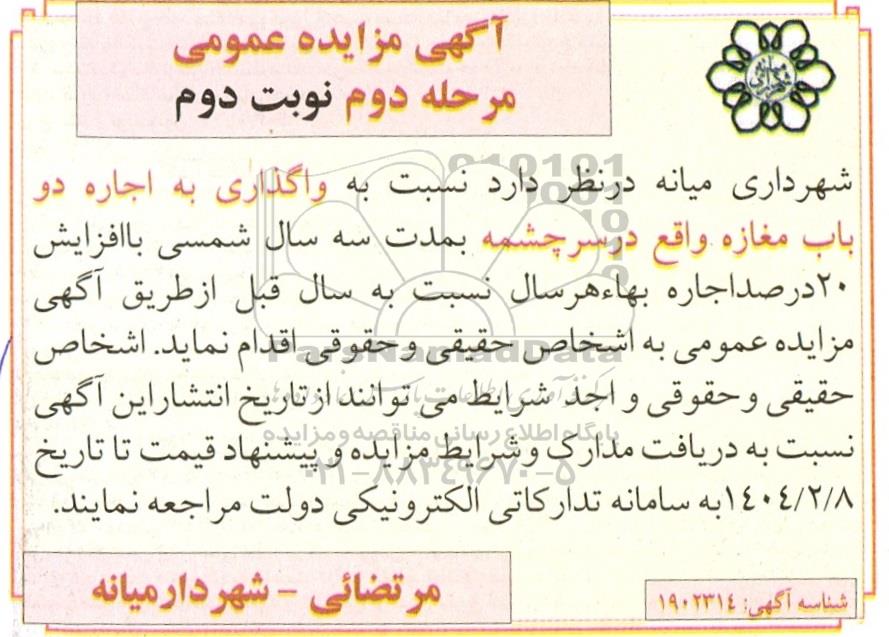 آگهی مزایده عمومی
مرحله دوم نوبت دوم
شهرداری میانه
شهرداری میانه درنظر دارد نسبت به واگذاری به اجاره دو
باب مغازه واقع درسرچشمه بمدت سه سال شمسی باافزایش
۲۰درصداجاره بهاءهرسال نسبت به سال قبل ازطریق آگهی
مزایده عمومی به اشخاص حقیقی وحقوقی اقدام نماید. اشخاص
حقیقی وحقوقی و اجد شرایط می توانند ازتاریخ انتشاراین آگهی
نسبت به دریافت مدارک وشرایط مزایده و پیشنهاد قیمت تا تاریخ
۱۴۰۴/۲/۸به سامانه تدارکاتی الکترونیکی دولت مراجعه نمایند.
ParsNamadData
پایگاه اطلاع رسانی مناقصه و مزایده
۰۲۱-۸۸۳۴۹۶۷۰-۵
مرتضائی - شهردارمیانه
شناسه آگهی: ۱۹۰۲۳۱۴